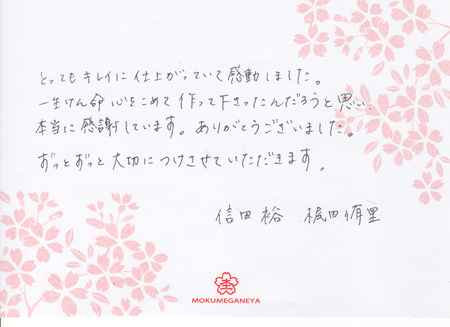 とってもキレイに仕上がっていて感動しました。
一生けん命心をこめて作って下さったんだろうと思い、
本当に感謝しています。ありがとうございました。
ずっとずっと大切につけさせていただきます。
信田 裕 梶田侑里
MOKUMEGANEYA